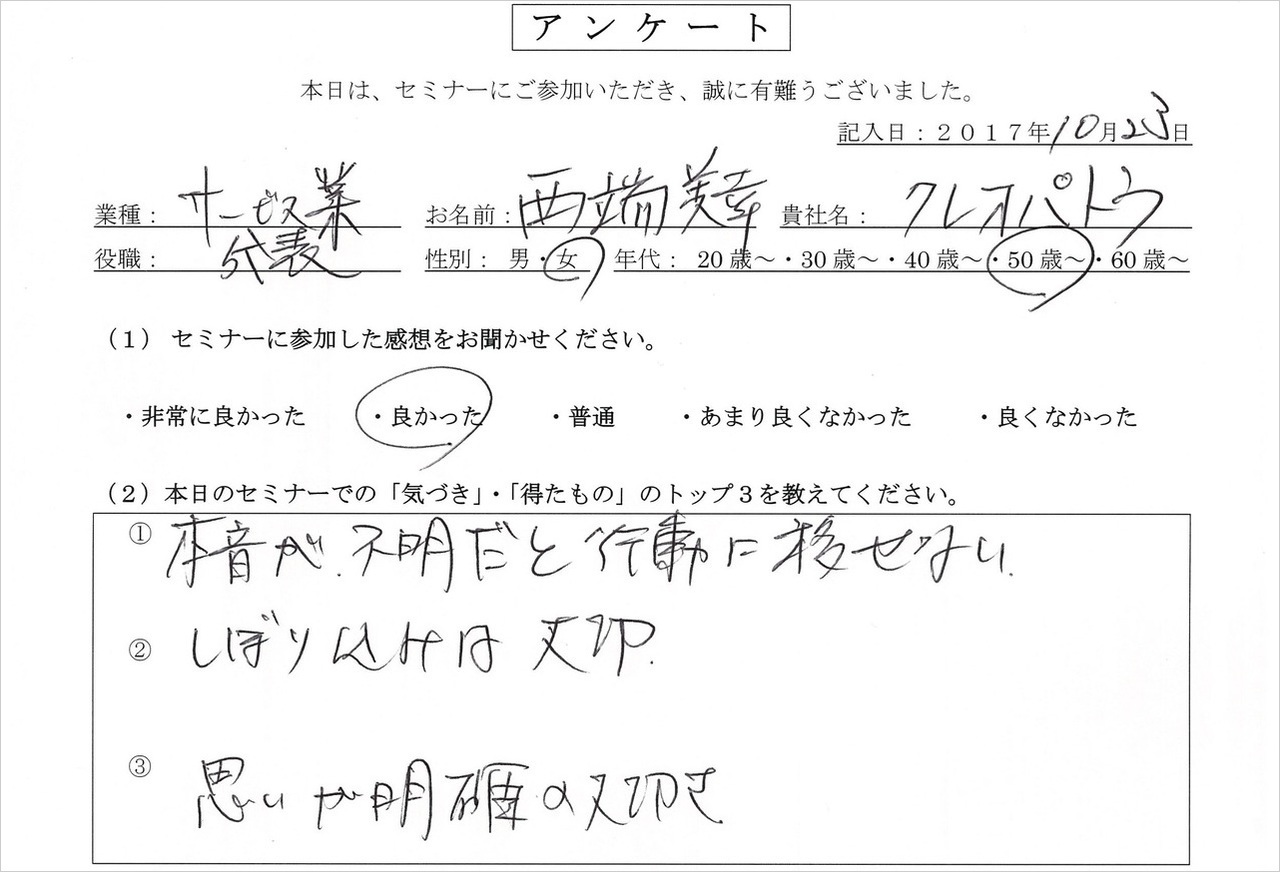 アンケート
本日は、セミナーにご参加いただき、誠に有難うございました。
記入日：２０１７年10月23日
業種：サービス業 お名前：西端美幸 貴社名：クレオパトラ
役職：代表 性別：男・女 年代：20歳～・30歳～・40歳～・50歳～・60歳～
（１）セミナーに参加した感想をお聞かせください。
・非常に良かった ・良かった ・普通 ・あまり良くなかった ・良くなかった
（２）本日のセミナーでの「気づき」・「得たもの」のトップ３を教えてください。
① 本音が不明だと行動に移せない.
② しぼり込みは大切.
③ 思いが明確の大切さ